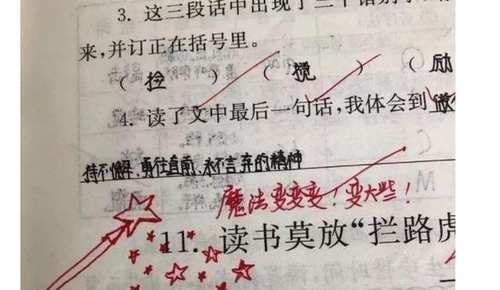 3. 这三段话中出现了三个错别字,
来,并订正在括号里。
(捡) (搅) (励
4. 读了文中最后一句话,我体会到
持不懈、勇往直前、永不言弃的精神
魔法变变变!变大些!
11. 读书莫放“拦路虎